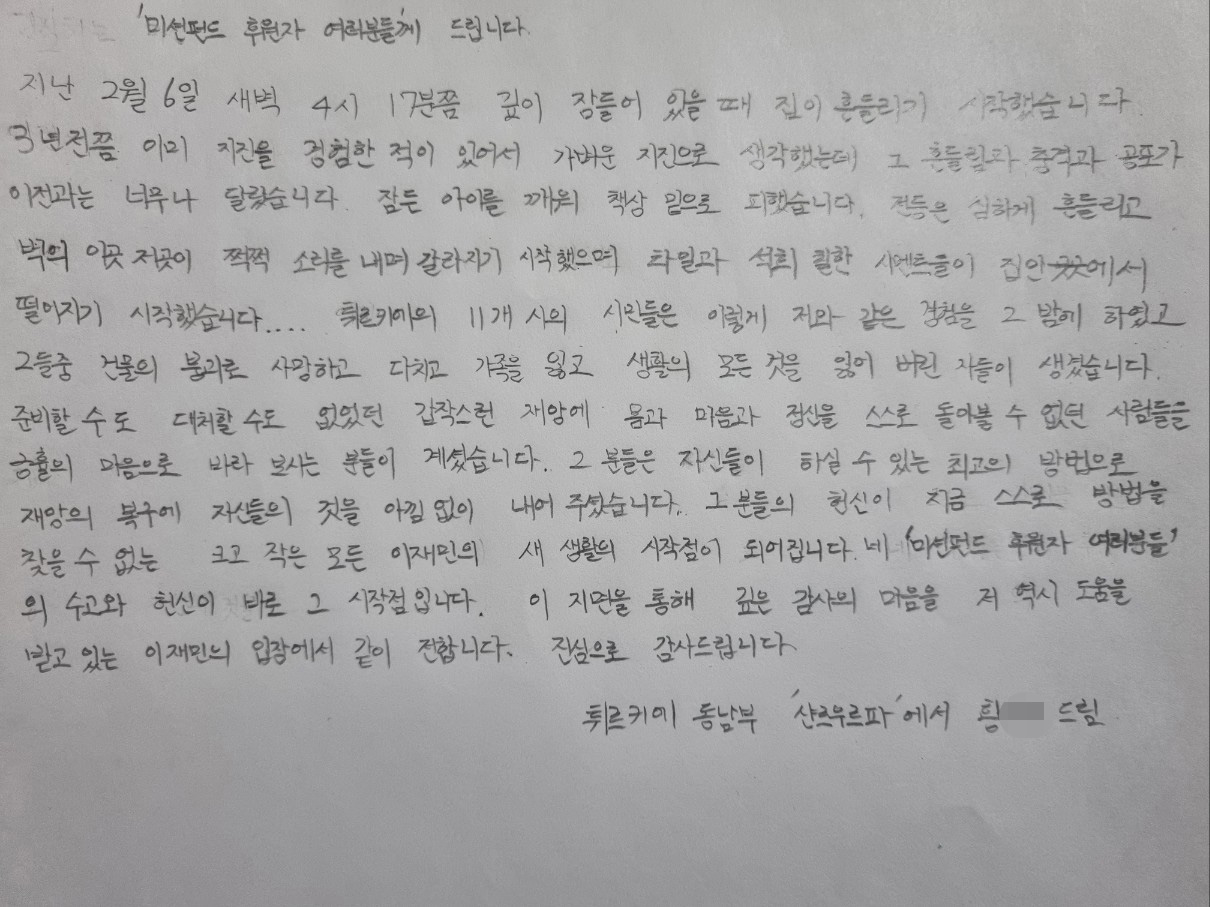 '미션펀드 후원자 여러분들'께 드립니다.
지난 2월 6일 새벽 4시 17분쯤 깊이 잠들어 있을 때 집이 흔들리기 시작했습니다.
3년전쯤 이미 지진을 경험한 적이 있어서 가벼운 지진으로 생각했는데 그 흔들림과 충격과 공포가
이전과는 너무나 달랐습니다. 잠든 아이를 깨워 책상 밑으로 피했습니다. 전등은 심하게 흔들리고
벽의 이곳 저곳이 쩍쩍 소리를 내며 갈라지기 시작했으며 타일과 석회 칠한 시멘트들이 집안 곳곳에서
떨어지기 시작했습니다.... 튀르키예의 11개 시의 시민들은 이렇게 저와 같은 경험을 그 밤에 하였고
그들중 건물의 붕괴로 사망하고 다치고 가족을 잃고 생활의 모든 것을 잃어 버린 자들이 생겼습니다.
준비할 수도 대처할 수도 없었던 갑작스런 재앙에 몸과 마음과 정신을 스스로 돌아볼 수 없던 사람들을
긍휼의 마음으로 바라 보시는 분들이 계셨습니다. 그 분들은 자신들이 하실 수 있는 최고의 방법으로
재앙의 복구에 자신들의 것을 아낌 없이 내어 주셨습니다. 그 분들의 헌신이 지금 스스로 방법을
찾을 수 없는 크고 작은 모든 이재민의 새 생활의 시작점이 되어집니다. 네 '미션펀드 후원자 여러분들'
의 수고와 헌신이 바로 그 시작점입니다. 이 지면을 통해 깊은 감사의 마음을 저 역시 도움을
받고 있는 이재민의 입장에서 같이 전합니다. 진심으로 감사드립니다.
튀르키예 동남부 '샨르우르파'에서 드림